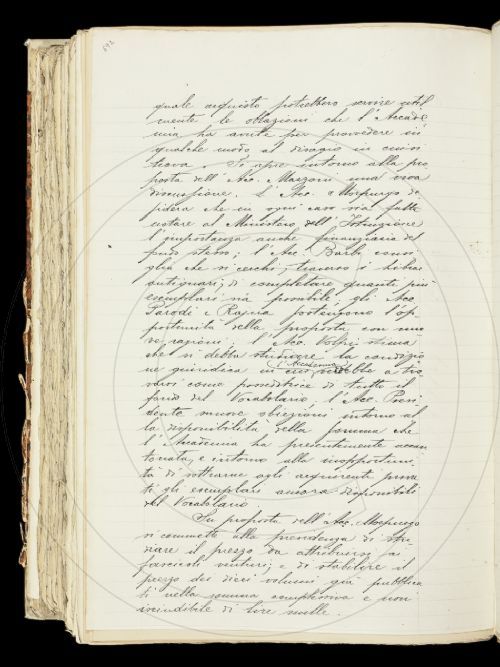 692
quale acquisto potrebbero servire util
mente le oblazioni che l'Accade
mia ha avute per provvedere in
qualche modo al disagio in cui si
trova. Si apre intorno alla pro
posta dell'Acc. Mazzoni una viva
discussione. L'Acc. Morpurgo de
sidera che in ogni caso sia fatta
notare al Ministero dell'Istruzione
l'importanza anche finanziaria del
fondo stesso; l'Acc. Barbi consi
glia che si cerchi, traverso i librai
antiquari, di completare quanti più
esemplari sia possibile; gli Acc.
Parodi e Rajna sostengono l'op
portunità della proposta con nuo
ve ragioni; l'Acc. Volpi stima
che si debba studiare la condizio
ne giuridica in cui l'Accademia verrebbe a tro
varsi come posseditrice di tutto il
fondo del Vocabolario; l'Acc. Presi
dente muove obiezioni intorno al
la disponibilità della somma che
l'Accademia ha presentemente accan
tonata, e intorno alla inopportuni
tà di sottrarre agli acquirenti priva
ti gli esemplari ancora disponibili
del Vocabolario.
Su proposta dell'Acc. Morpurgo
si commette alla presidenza di stu
diare il prezzo da attribuirsi ai
fascicoli venturi; e di stabilire il
prezzo dei dieci volumi già pubblica
ti nella somma complessiva e non
inscindibile di lire mille.